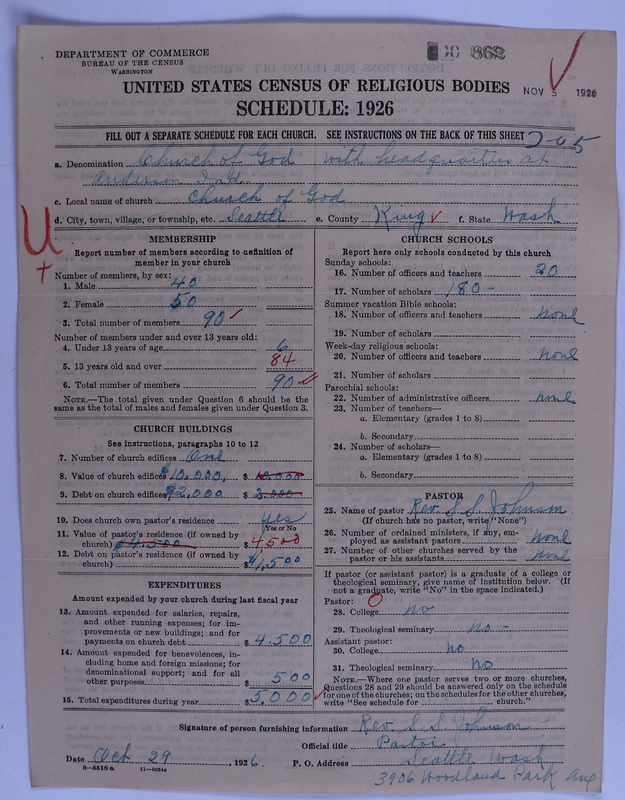 DEPARTMENT OF COMMERCE
BUREAU OF THE CENSUS
WASHINGTON
862
NOV 5 1926
UNITED STATES CENSUS OF RELIGIOUS BODIES
SCHEDULE: 1926
FILL OUT A SEPARATE SCHEDULE FOR EACH CHURCH. SEE INSTRUCTIONS ON THE BACK OF THIS SHEET
a. Denomination Church of God with headquarters at
Anderson Ind
c. Local name of church Church of God
d. City, town, village, or township, etc. Seattle e. County King f. State Wash
U
+
MEMBERSHIP
Report number of members according to definition of
member in your church
Number of members, by sex:
1. Male 40
2. Female 50
3. Total number of members 90
Number of members under and over 13 years old:
4. Under 13 years of age 6
5. 13 years old and over 84
6. Total number of members 90
NOTE.—The total given under Question 6 should be
the same as the total of males and females given under Question 3.
CHURCH BUILDINGS
See instructions, paragraphs 10 to 12
7. Number of church edifices One
8. Value of church edifices $10,000. $ 10.000
9. Debt on church edifices $2,000 $ 2.000
10. Does church own pastor's residence yes
Yes or No
11. Value of pastor's residence (if owned by
church) $4,500 $ 4500
12. Debt on pastor's residence (if owned by
church) $ 1,500
EXPENDITURES
Amount expended by your church during last fiscal year
13. Amount expended for salaries, repairs,
and other running expenses; for im-
provements or new buildings; and for
payments on church debt $ 4.500
14. Amount expended for benevolences, in-
cluding home and foreign missions; for
denominational support; and for all
other purposes $ 500
15. Total expenditures during year $ 5,000
CHURCH SCHOOLS
Report here only schools conducted by this church
Sunday schools:
16. Number of officers and teachers 20
17. Number of scholars 180-
Summer vacation Bible schools:
18. Number of officers and teachers none
19. Number of scholars
Week-day religious schools:
20. Number of officers and teachers none
21. Number of scholars
Parochial schools:
22. Number of administrative officers none
23. Number of teachers—
a. Elementary (grades 1 to 8)
b. Secondary
24. Number of scholars—
a. Elementary (grades 1 to 8)
b. Secondary
PASTOR
25. Name of pastor Rev. S S Johnson
(If church has no pastor, write "None")
26. Number of ordained ministers, if any, em-
ployed as assistant pastors none
27. Number of other churches served by the
pastor or his assistants none
If pastor (or assistant pastor) is a graduate of a college or
theological seminary, give name of institution below. (If
not a graduate, write "No" in the space indicated.)
Pastor:
28. College no
29. Theological seminary no -
Assistant pastor:
30. College no
31. Theological seminary no
NOTE.—Where one pastor serves two or more churches,
Questions 28 and 29 should be answered only on the schedule
for one of the churches; on the schedules for the other churches,
write "See schedule for church."
Signature of person furnishing information Rev. S S Johnson
Official title Pastor
Date Oct 29, 1926. P. O. Address Seattle Wash
8—5518a 11—9054a
3906 Woodland Park Ave